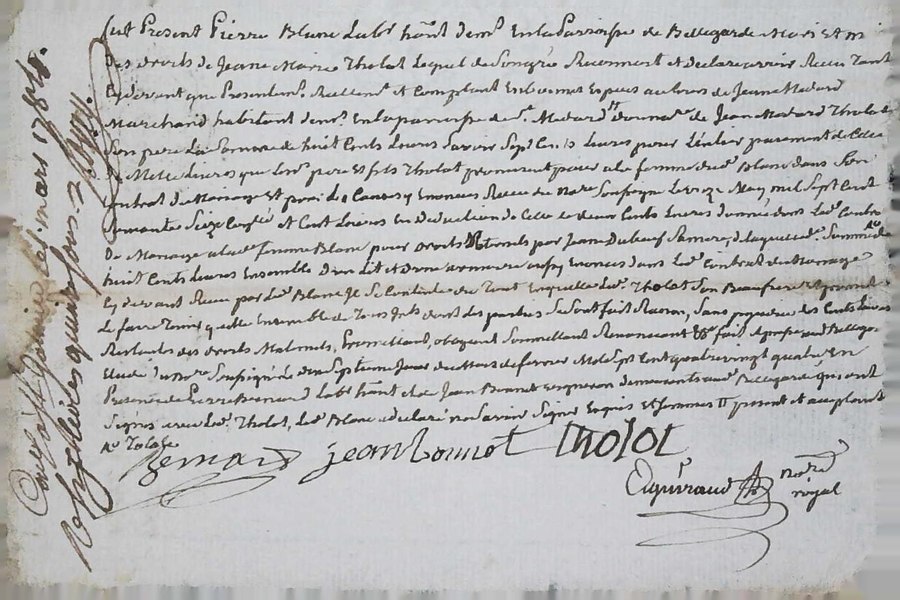 fut Present Pierre Blanc Lab.r ha.nt dem.t En la Parroisse de Bellegarde Mari Et m
des droits de Jeane Marie Tholot Lequel de Son gré Reconnoit et declare avoir Receu Tant
Cy devant que Presentem.t Reellem.t et Comptant En bonnet Especes au Cours de Jean Medard
Marchand habitant dem.t En la paroisse de S.t Medard de Jean Medard Tholot
Son pere La Somme de huit Cents Livres Savoir Sept Cents Livres pour L'entier payement de Celle
de Mille Livres que Les.d pere et fils Tholot promirent payer a la femme dud. Blanc dans Son
Contrat de Mariage Et Enonces Receu du No.re Soussigné Le onze May mil Sept Cent
Soixante Seize Conté et Cent Livres En deduction de Celle de deux Cents Livres donnée dans Led. Contrat
de Mariage a lad. femme Blanc pour droits Maternels par Jeane Dubeuf Sa mere, de laquelle d. Somme de
huit Cents Livres Ensemble d'un Lit et d'une armoire aussy Enonces dans Led. Contrat de Mariage
Cy devant Receu par Led. Blanc Il Se Contente du Tout En quitte Led. Tholot Son Beaufrere et promet
Le faire Tenir quitte Ensemble de Tous Int. dont Les parties Se Sont fait Raison, Sans prejudice des Cent Livres
Restantes des droits Maternels, Promettant, obligeant Soumettant Renoncant &c fait et passé aud. Bellegarde
Etude du No.re Soussigné Le vingt Septieme Jour du Mois de fevrier Mil Sept Cent quatre vingt quatre En
Presence de Pierre Bernard Lab.r ha.nt et de Jean Bonnet vigneron demeurants aud. Bellegarde qui ont
Signés avec Led. Tholot, Led. Blanc a declaré ne Savoir Signer Enquis Et Sommé
Bernard jean bonnet tholot
Aguiraud No.re
royal
mars 1784.
quinze sols